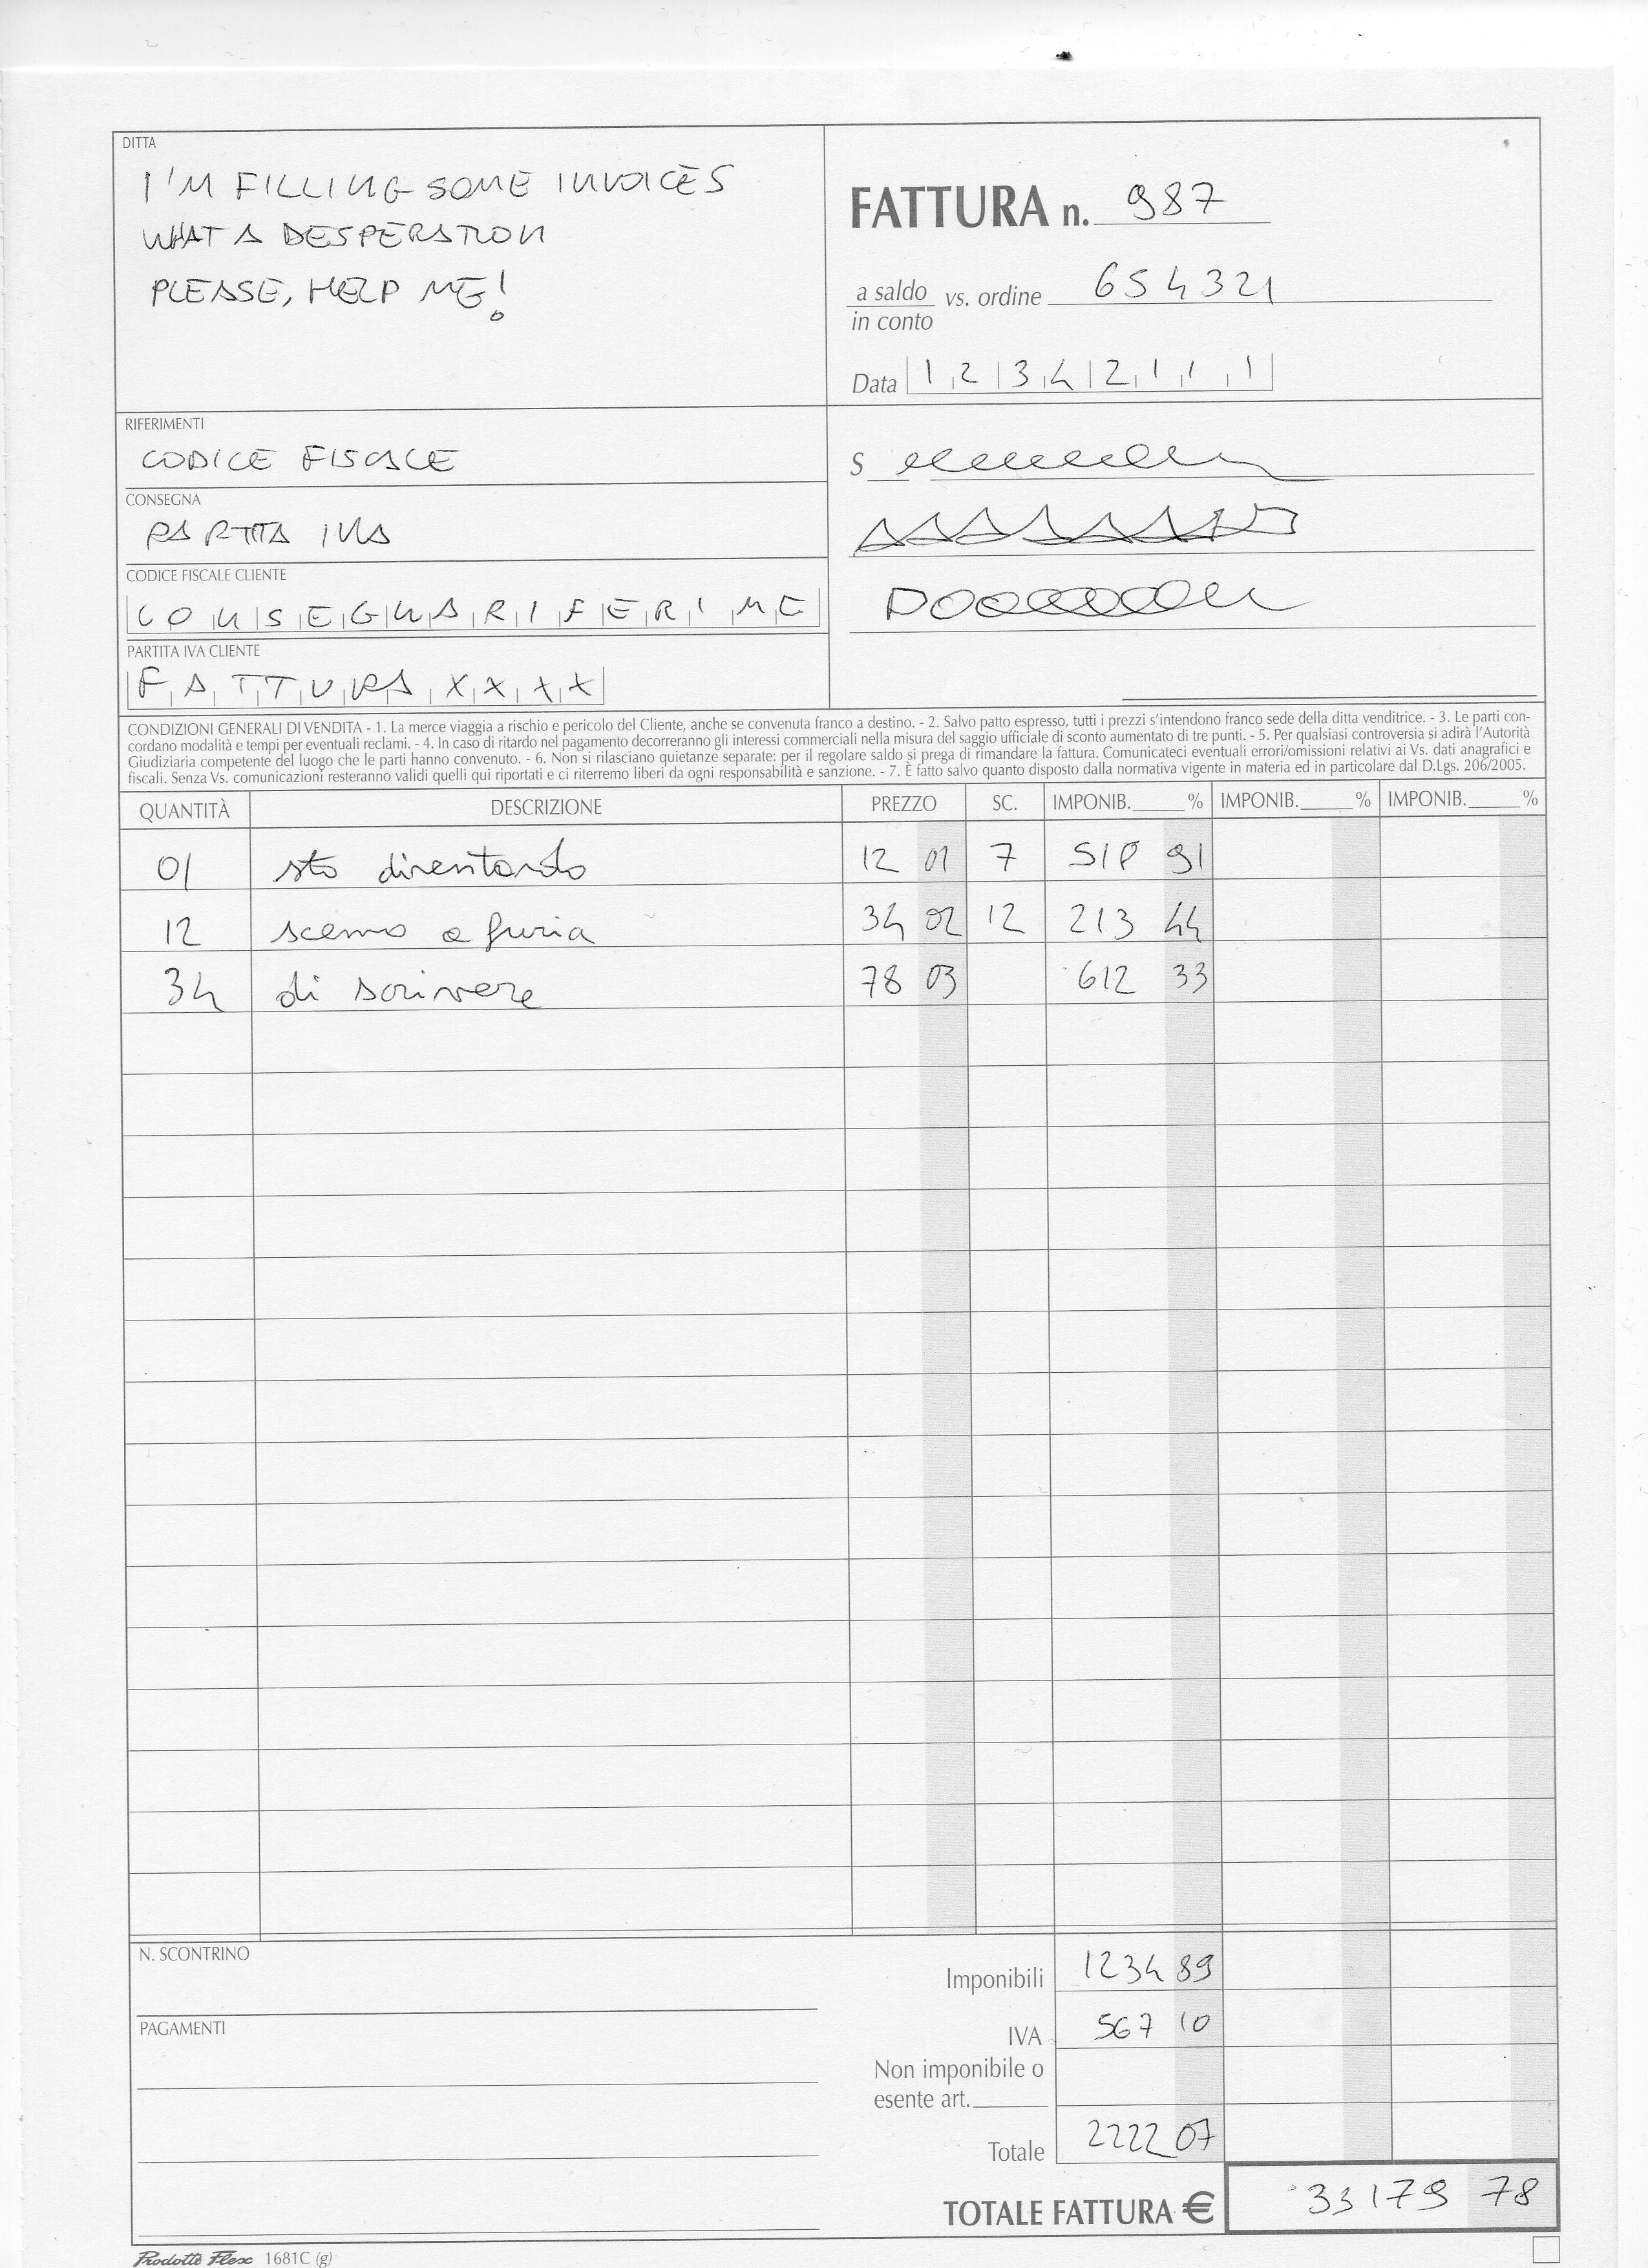 DITTA
I'M FILLING SOME INVOICES
WHAT A DESPERATION
PLEASE, HELP ME!
FATTURA n. 987
a saldo vs. ordine 654321
in conto
Data 12342111
RIFERIMENTI
CODICE FISCALE
CONSEGNA
PARTITA IVA
CODICE FISCALE CLIENTE
CONSEGNARIFERIME
PARTITA IVA CLIENTE
FATTURAXXXX
S
CONDIZIONI GENERALI DI VENDITA - 1. La merce viaggia a rischio e pericolo del Cliente, anche se convenuta franco a destino. - 2. Salvo patto espresso, tutti i prezzi s'intendono franco sede della ditta venditrice. - 3. Le parti con-
cordano modalità e tempi per eventuali reclami. - 4. In caso di ritardo nel pagamento decorreranno gli interessi commerciali nella misura del saggio ufficiale di sconto aumentato di tre punti. - 5. Per qualsiasi controversia si adirà l'Autorità
Giudiziaria competente del luogo che le parti hanno convenuto. - 6. Non si rilasciano quietanze separate: per il regolare saldo si prega di rimandare la fattura. Comunicateci eventuali errori/omissioni relativi ai Vs. dati anagrafici e
fiscali. Senza Vs. comunicazioni resteranno validi quelli qui riportati e ci riterremo liberi da ogni responsabilità e sanzione. - 7. È fatto salvo quanto disposto dalla normativa vigente in materia ed in particolare dal D.Lgs. 206/2005.
QUANTITÀ DESCRIZIONE PREZZO SC. IMPONIB.____% IMPONIB.____% IMPONIB.____%
01 sto diventando 12 01 7 91
12 scemo a furia 34 02 12 213 44
34 di scrivere 78 03 612 33
N. SCONTRINO
Imponibili 1234 89
PAGAMENTI
IVA 567 10
Non imponibile o
esente art.____
Totale 2222 07
TOTALE FATTURA € 33179 78
Prodotti Flex 1681C (g)